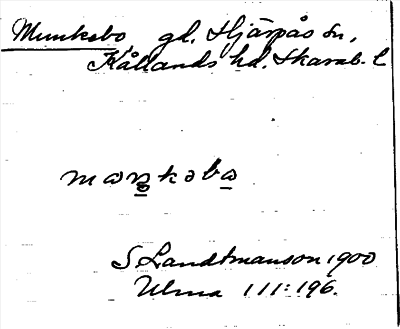 Munkebo gl. Hjärpås sn,
Kållands hd. Skarab. l
S Landtmanson 1900
Ulma 111:196.